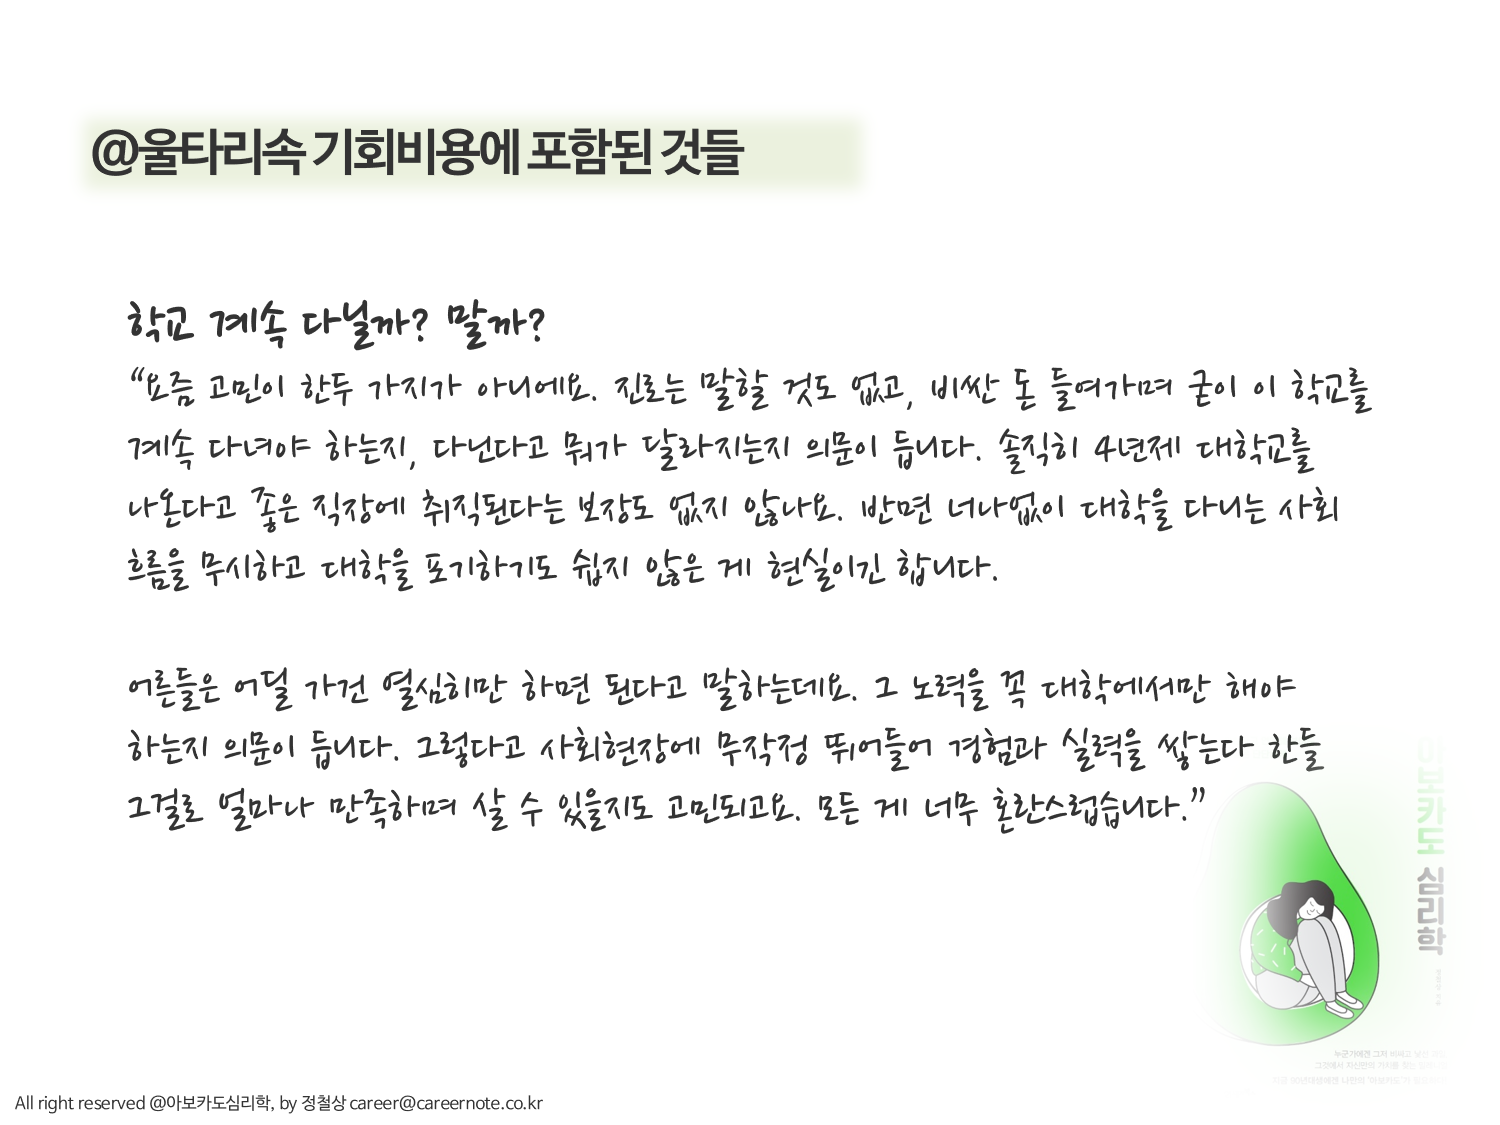 @울타리속 기회비용에 포함된 것들
학교 계속 다닐까? 말까?
“요즘 고민이 한두 가지가 아니에요. 진로는 말할 것도 없고, 비싼 돈 들여가며 굳이 이 학교를
계속 다녀야 하는지, 다닌다고 뭐가 달라지는지 의문이 듭니다. 솔직히 4년제 대학교를
나온다고 좋은 직장에 취직된다는 보장도 없지 않나요. 반면 너나없이 대학을 다니는 사회
흐름을 무시하고 대학을 포기하기도 쉽지 않은 게 현실이긴 합니다.
어른들은 어딜 가건 열심히만 하면 된다고 말하는데요. 그 노력을 꼭 대학에서만 해야
하는지 의문이 듭니다. 그렇다고 사회현장에 무작정 뛰어들어 경험과 실력을 쌓는다 한들
그걸로 얼마나 만족하며 살 수 있을지도 고민되고요. 모든 게 너무 혼란스럽습니다.”
아보카도 심리학
누군가에겐 그저
All right reserved @아보카도심리학, by 정철상 career@careernote.co.kr